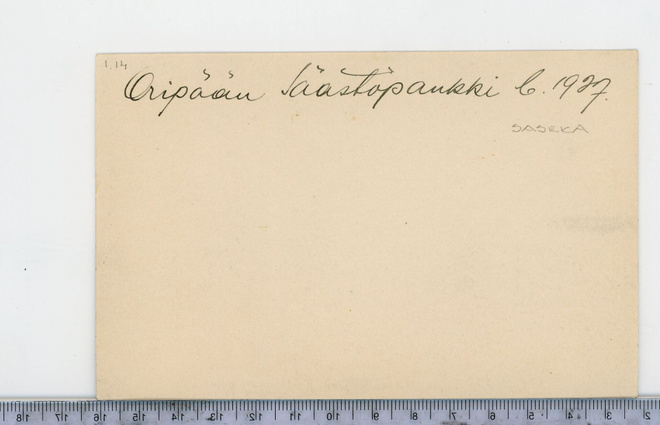 1.14
Oripään Säästöpankki C. 1927.
SASEKA
18 17 16 15 14 13 12 11 10 9 8 7 6 5 4 3 2